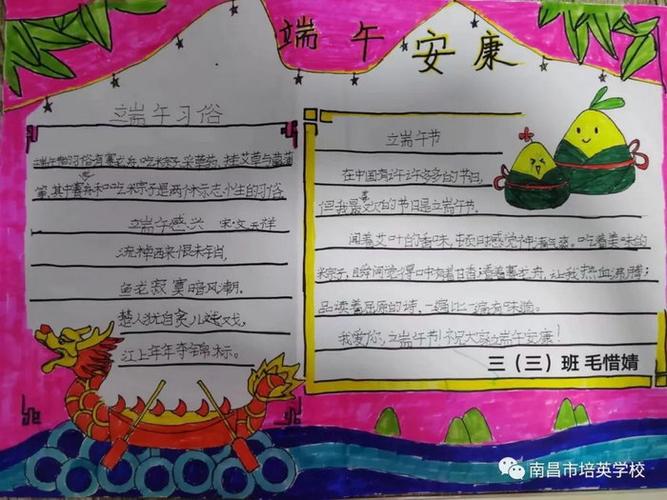 端午安康
端午习俗
端午节的习俗有赛龙舟、吃粽子、采草药、挂艾草与菖蒲
等,其中赛龙舟和吃粽子是两个标志性的习俗。
端午感兴 宋·文天祥
流棹西来恨未销,
鱼龙寂寞暗风潮.
楚人犹自贪儿戏,
江上年年夺锦标.
端午节
在中国有许许多多的节日,
但我最喜欢的节日是端午节。
闻着艾叶的香味,顿时感觉神清气爽。吃着美味的
粽子,瞬间觉得口中有着甘香;看着赛龙舟,让我热血沸腾;
品读着屈原的诗,一遍比一遍有味道。
我爱你,端午节!祝大家端午安康!
三(三)班 毛惜婧
南昌市培英学校